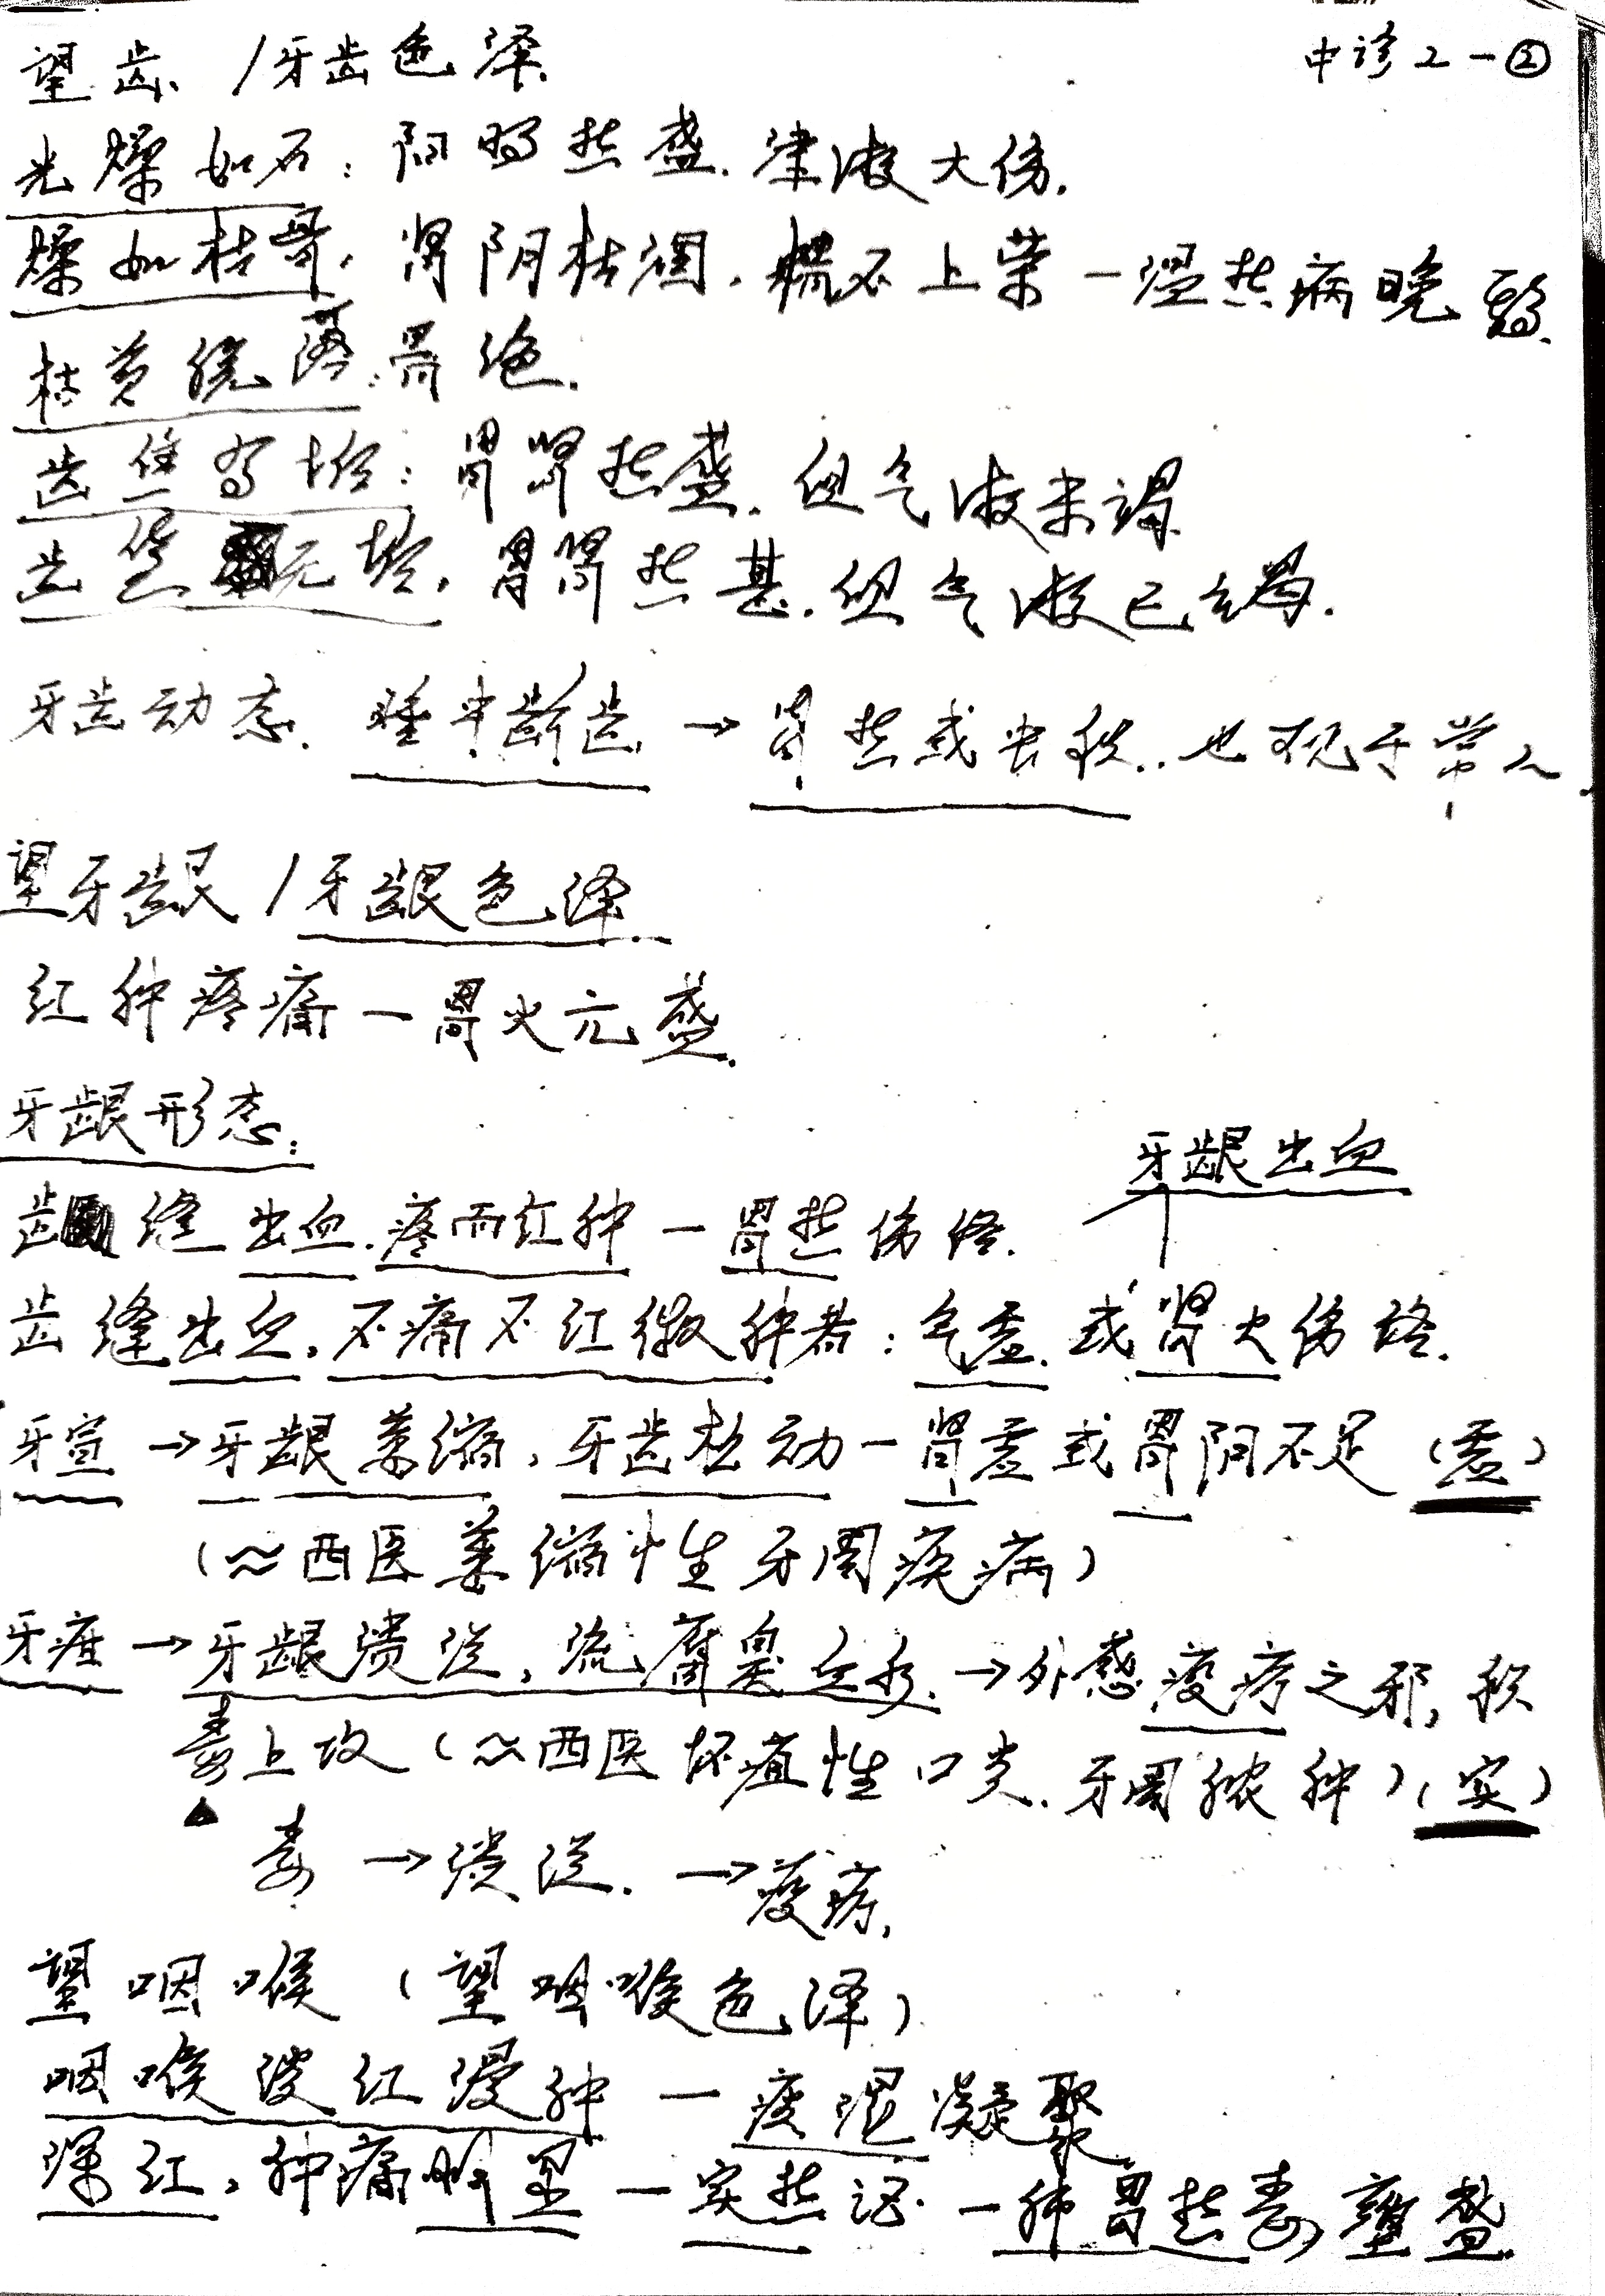 中诊2-②
望齿、/牙齿色泽
光燥如石：阳明热盛.津液大伤.
燥如枯骨，肾阴枯涸.精不上荣-温热病晚期.
枯黄脱落：骨绝.
齿焦有垢：胃肾热盛.但气液未竭
齿焦无垢，胃肾热甚.但气液已竭.
牙齿动态.睡中龂齿→胃热或虫积..也可见于常人.
望牙龈/牙龈色泽
红肿疼痛-胃火亢盛.
牙龈形态：
牙龈出血
齿缝出血.疼而红肿-胃热伤络.
齿缝出血，不痛不红微肿者：气虚.或肾火伤络.
牙宣→牙龈萎缩，牙齿松动-肾虚或胃阴不足（虚）
（≈西医萎缩性牙周疾病）
牙疳→牙龈溃烂，流腐臭血水.→外感疫疠之邪，积
毒上攻（≈西医坏疽性口炎.牙周脓肿）（实）
毒→溃烂.→疫疠，
望咽喉（望咽喉色泽）
咽喉淡红漫肿-痰湿凝聚
深红，肿痛明显-实热证.-肺胃热毒壅盛